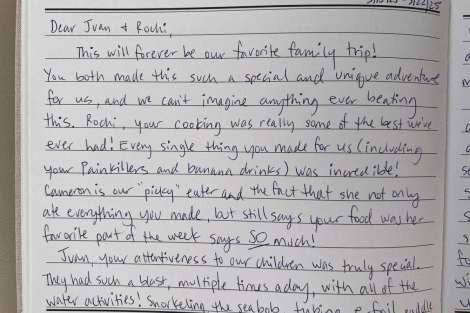 3/22/25
Dear Juan & Rochi,
This will forever be our favorite family trip!
You both made this such a special and unique adventure
for us, and we can't imagine anything ever beating
this. Rochi, your cooking was really some of the best we've
ever had! Every single thing you made for us (including
your Painkillers and banana drinks) was incredible!
Cameron is our "picky" eater and the fact that she not only
ate everything you made, but still says your food was her
favorite part of the week says SO much!
Juan, your attentiveness to our children was truly special.
They had such a blast, multiple times a day, with all of the
water activities! Snorkeling, the seabob, tubing, e-foil, paddle